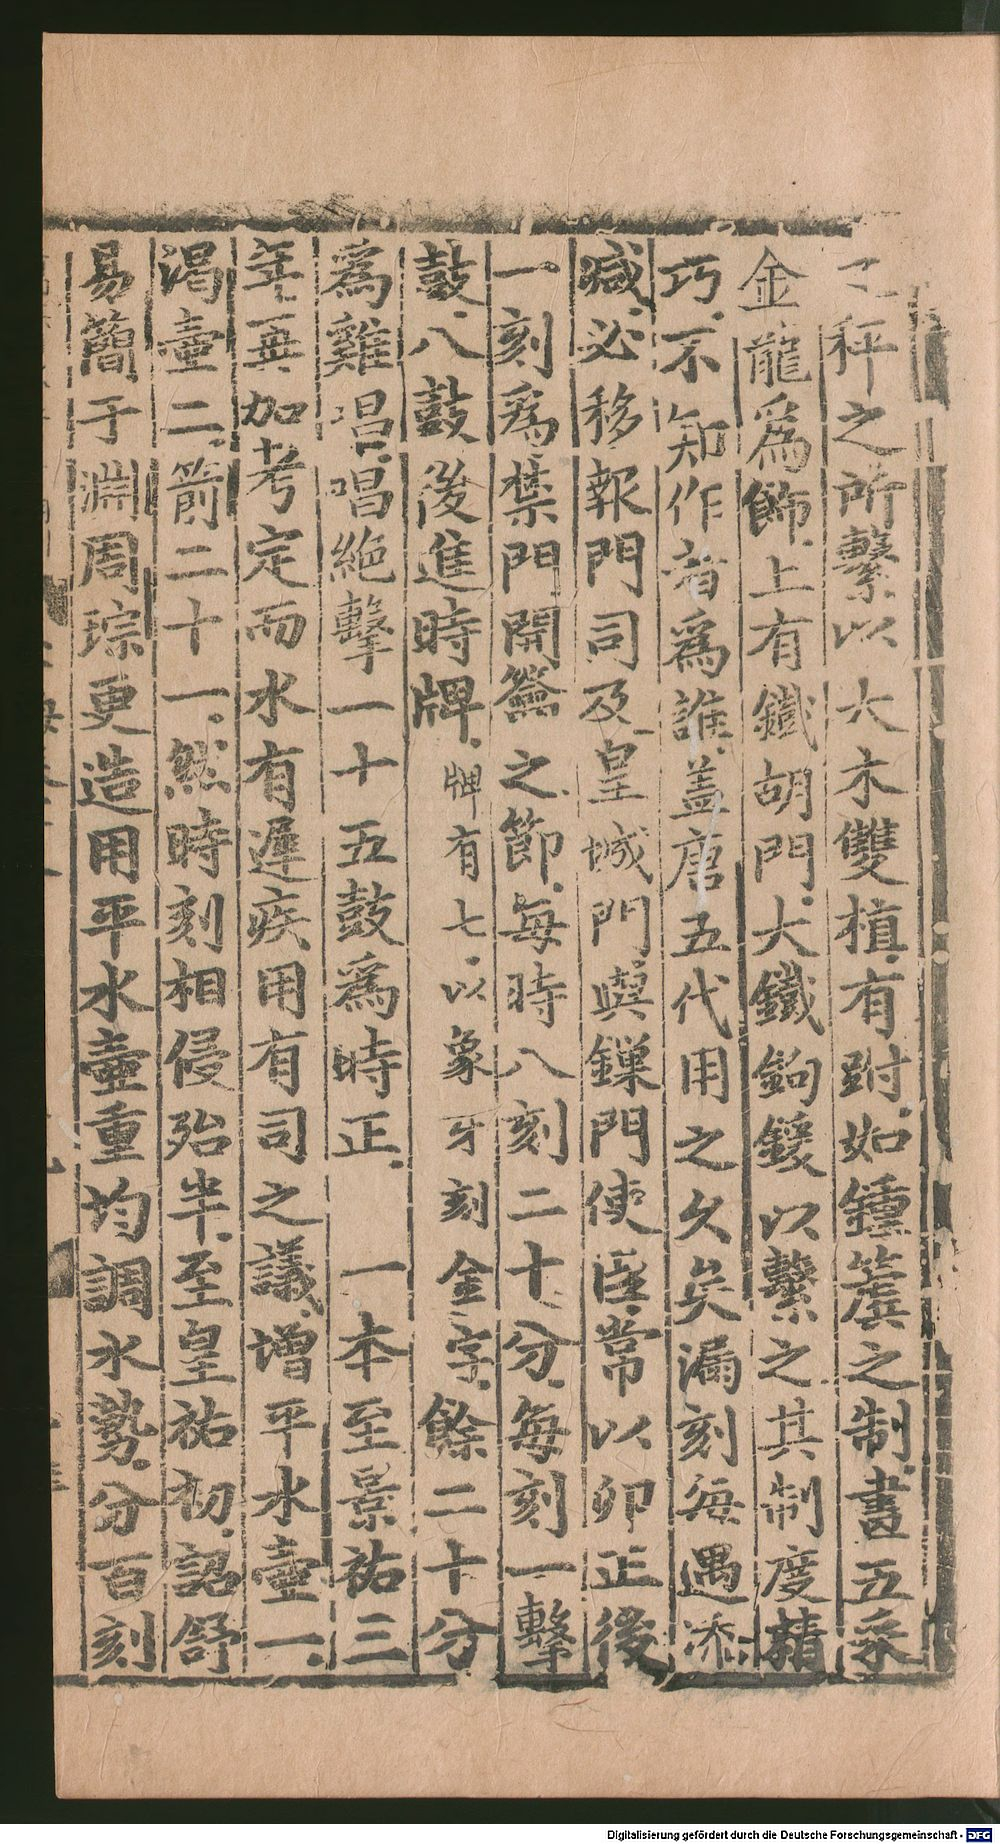 秤之所繫以大木雙植有跗如鍾簴之制畫五采
金龍爲飾上有鐵胡門大鐵鉤鍰以繫之其制度精
巧不知作者爲誰蓋唐五代用之久矣漏刻每遇添
减必移報門司及皇城門與鏁門使臣常以卯正後
一刻爲禁門開籥之節每時八刻二十分每刻一擊
鼓八鼓後進時牌牌有七以象牙刻金字餘二十分
爲雞唱唱絕擊一十五鼓爲時正一本至景祐三
年再加考定而水有遲疾用有司之議增平水壺一
渴壺二箭二十一然時刻相侵殆半至皇祐初詔舒
易簡于淵周琮更造用平水壺重均調水勢分百刻
Digitalisierung gefördert durch die Deutsche Forschungsgemeinschaft - DFG